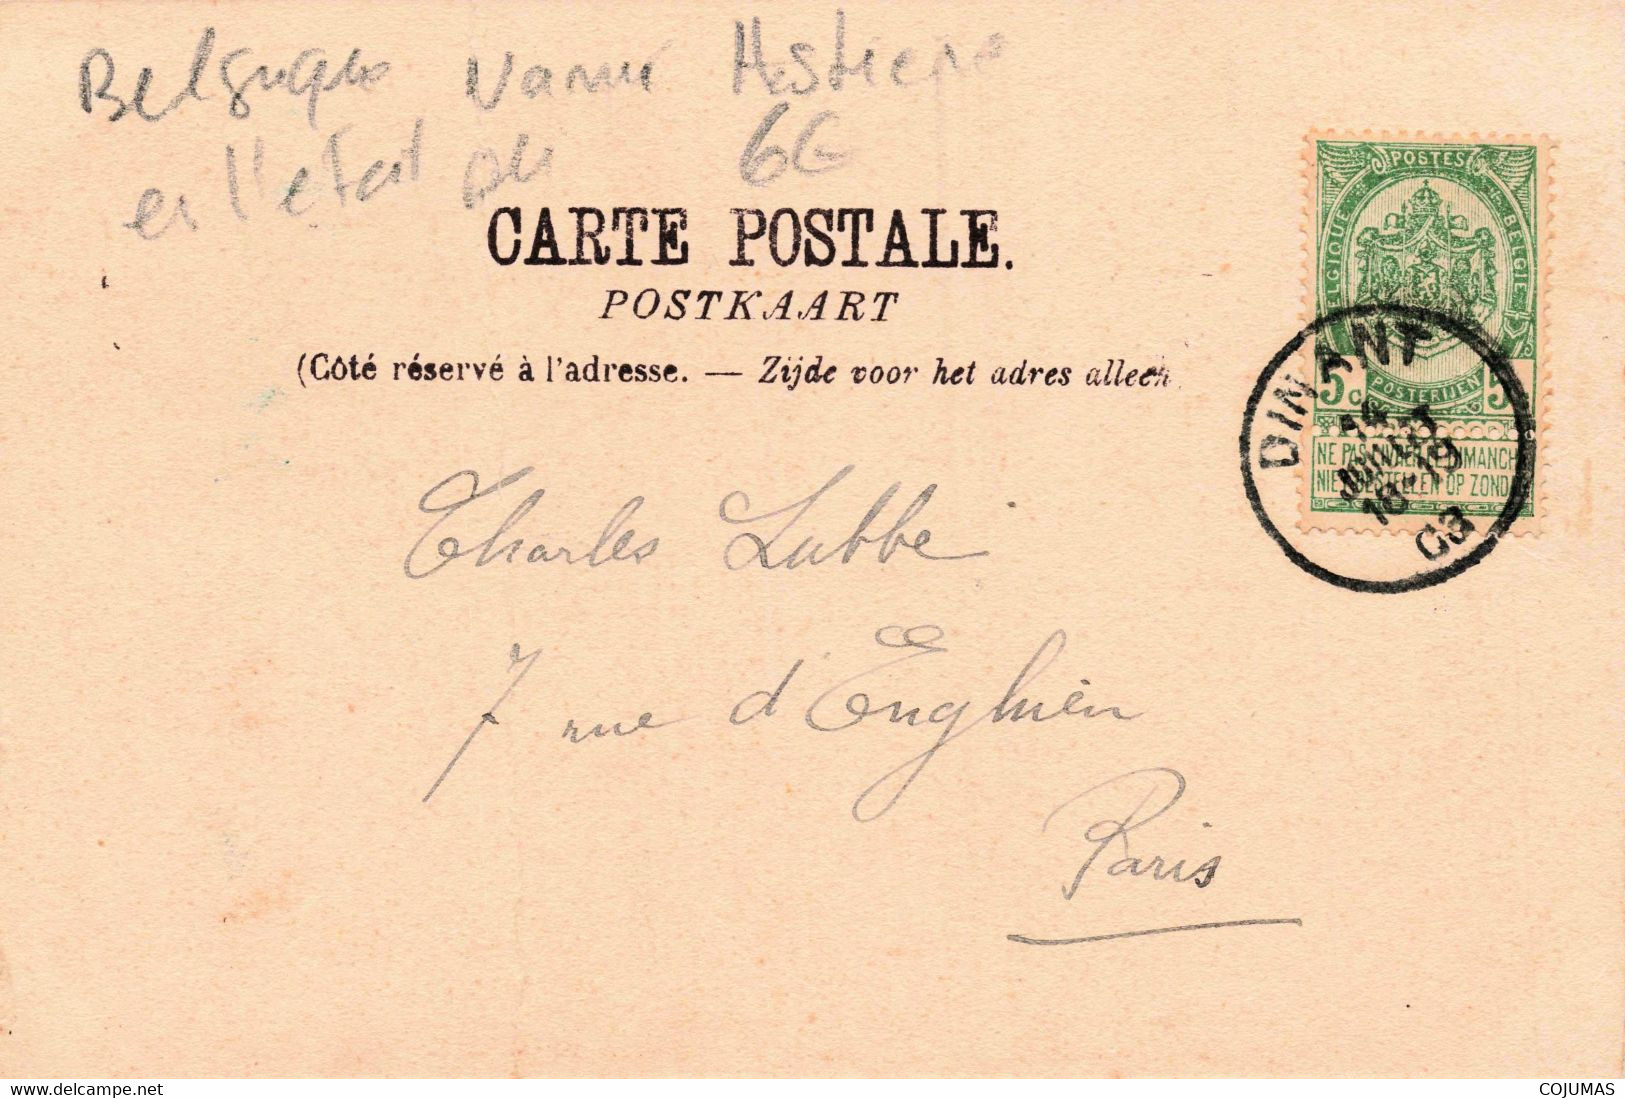 Belgique Namur Hastiere
en l'etat
6€
CARTE POSTALE.
POSTKAART
(Côté réservé à l'adresse. — Zijde voor het adres alleen
POSTES
BELGIQUE BELGIE
5c POSTERIJEN 5
NE PAS LIVRER LE DIMANCHE
NIET BESTELLEN OP ZONDAG
DINANT
14
JUILLET
18-19
03
Charles Labbé
7 rue d'Enghien
Paris
COJUMAS